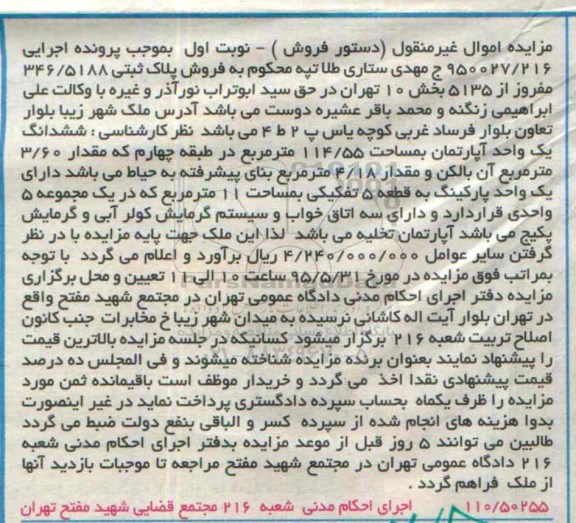 مزایده اموال غیرمنقول (دستور فروش) - نوبت اول بموجب پرونده اجرایی
۹۵۰۰۲۷/۲۱۶ ج مهدی ستاری طلا تپه محکوم به فروش پلاک ثبتی ۳۴۶/۵۱۸۸
مفروز از ۵۱۳۵ بخش ۱۰ تهران در حق سید ابوتراب نورآذر و غیره با وکالت علی
ابراهیمی زنگنه و محمد باقر عشیره دوست می باشد آدرس ملک شهر زیبا بلوار
تعاون بلوار فرساد غربی کوچه یاس پ ۲ ط ۴ می باشد نظر کارشناسی : ششدانگ
یک واحد آپارتمان بمساحت ۱۱۴/۵۵ مترمربع در طبقه چهارم که مقدار ۳/۶۰
مترمربع آن بالکن و مقدار ۴/۱۸ مترمربع بنای پیشرفته به حیاط می باشد دارای
یک واحد پارکینگ به قطعه ۵ تفکیکی بمساحت ۱۱ مترمربع که در یک مجموعه ۵
واحدی قراردارد و دارای سه اتاق خواب و سیستم گرمایش کولر آبی و گرمایش
پکیج می باشد آپارتمان تخلیه می باشد لذا این ملک جهت پایه مزایده با در نظر
گرفتن سایر عوامل ۴/۲۴۰/۰۰۰/۰۰۰ ریال برآورد و اعلام می گردد با توجه
بمراتب فوق مزایده در مورخ ۹۵/۵/۳۱ ساعت ۱۰ الی ۱۱ تعیین و محل برگزاری
مزایده دفتر اجرای احکام مدنی دادگاه عمومی تهران در مجتمع شهید مفتح واقع
در تهران بلوار آیت اله کاشانی نرسیده به میدان شهر زیبا خ مخابرات جنب کانون
اصلاح تربیت شعبه ۲۱۶ برگزار میشود کسانیکه در جلسه مزایده بالاترین قیمت
را پیشنهاد نمایند بعنوان برنده مزایده شناخته میشوند و فی المجلس ده درصد
قیمت پیشنهادی نقدا اخذ می گردد و خریدار موظف است باقیمانده ثمن مورد
مزایده را ظرف یکماه بحساب سپرده دادگستری پرداخت نماید در غیر اینصورت
بدوا هزینه های انجام شده از سپرده کسر و الباقی بنفع دولت ضبط می گردد
طالبین می توانند ۵ روز قبل از موعد مزایده بدفتر اجرای احکام مدنی شعبه
۲۱۶ دادگاه عمومی تهران در مجتمع شهید مفتح مراجعه تا موجبات بازدید آنها
از ملک فراهم گردد .
۱۱۰/۵۰۲۵۵ اجرای احکام مدنی شعبه ۲۱۶ مجتمع قضایی شهید مفتح تهران